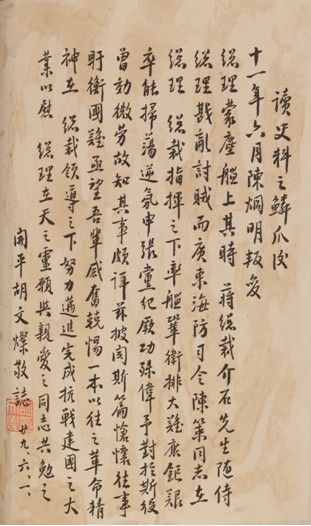 讀史料之鱗爪後
十一年六月陳烱明叛變
總理蒙塵艦上其時 蔣總裁介石先生随侍
總理戡亂討賊而廣東海防司令陳策同志在
總理 總裁指揮之下率艦鞏衛排大難応鉅艱
卒能掃蕩逆氣申張黨紀厥功殊偉予對於斯役
曾効微勞故知其事頗詳茲披閱斯篇愴懷往事
盱衡國難亟望吾輩感奮兢惕一本以往之革命精
神在 總裁領導之下努力邁進完成抗戰建國之大
業以慰 總理在天之靈願與親愛之同志共勉之
開平胡文燦敬誌 廿九、六、一、